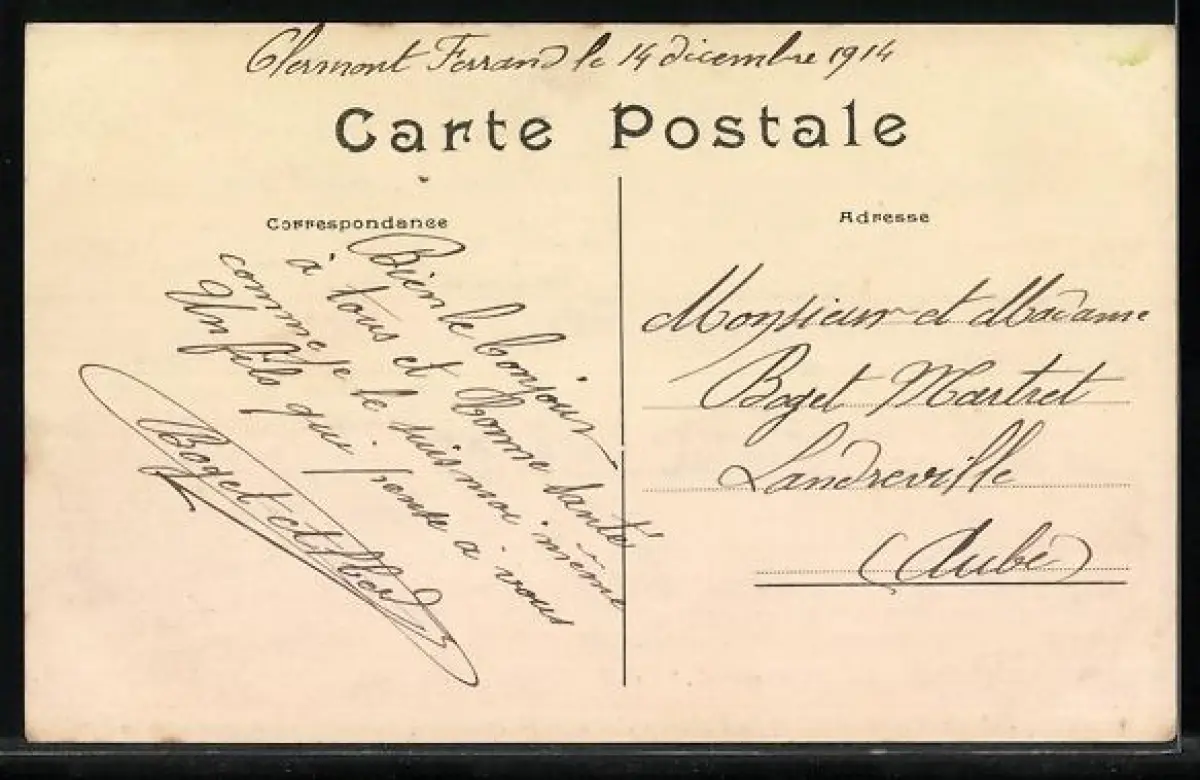 Clermont Ferrand le 14 décembre 1914
Carte Postale
Correspondance
Bien le bonjour
à tous et bonne santé
comme je le suis moi même
Un fils qui pense à vous
Boget Albert
Adresse
Monsieur et Madame
Boget Martret
Landreville
(Aube)